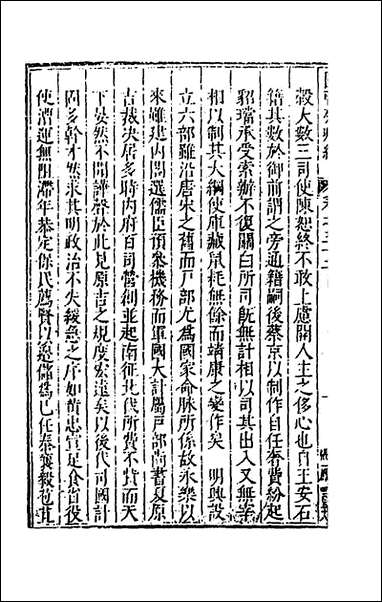 穀大數三司使陳恕終不敢上慮開人主之侈心也自王安石
籍其數於御前謂之旁通籍嗣後蔡京以制作自任奢費紛起
貂璫承受索辦不復關白所司旣無計相以司其出入又無宰
相以制其大綱使庫藏鼠耗無餘而靖康之變作矣　明興設
立六部雖沿唐宋之舊而戸部尤爲國家命脉所係故永樂以
來雖建內閣選儒臣預參機務而軍國大計屬戸部尚書夏原
吉裁决居多時內府百司營創並起南征北伐所費不貲而天
下晏然不聞譁聲於此見原吉之規度宏遠矣以後代司國計
固多幹才然求其明政治不失緩急之序如黃忠宣足食省役
使漕運無阻滯年恭定保民薦賢以邊儲爲已任秦襄毅苞苴